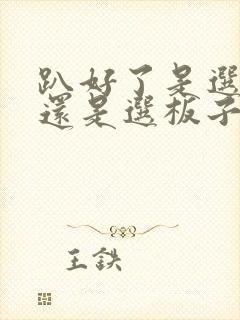 趴好了是選
還是選板子
王鉄